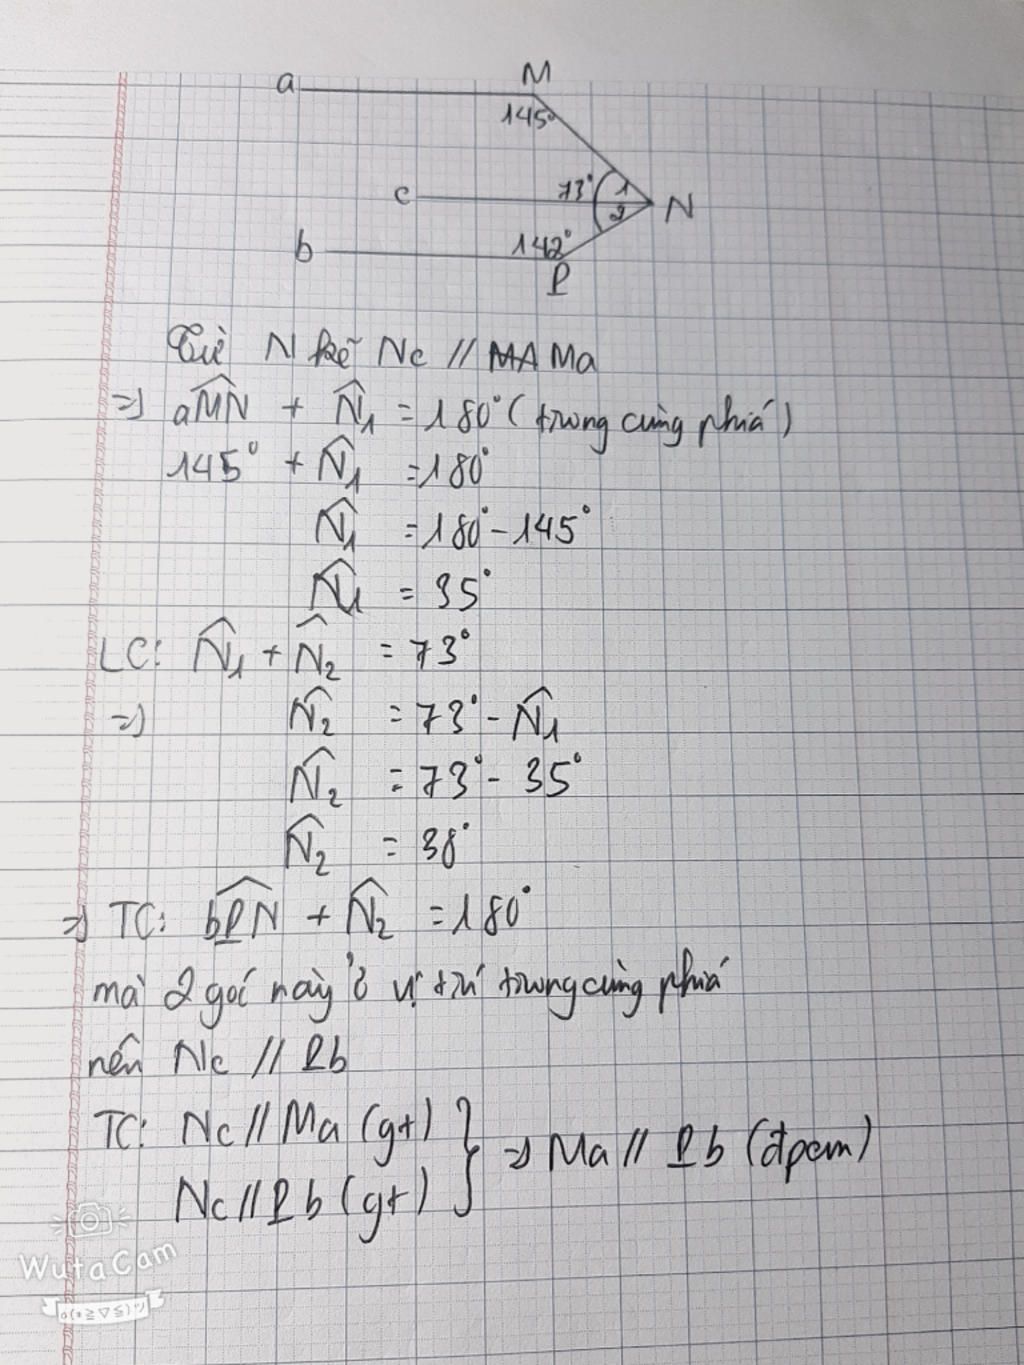 a
M
145°
c
73°
1
2
N
b
142°
P
Từ N kẻ Nc // MA Ma
=> aMN + N1 = 180° (trong cùng phía)
145° + N1 = 180°
N1 = 180° - 145°
N1 = 35°
LC: N1 + N2 = 73°
=> N2 = 73° - N1
N2 = 73° - 35°
N2 = 38°
=> TC: bPN + N2 = 180°
mà 2 góc này ở vị trí trong cùng phía
nên Nc // Pb
TC: Nc // Ma (gt)
Nc // Pb (gt)
} => Ma // Pb (đpcm)
WutaCam